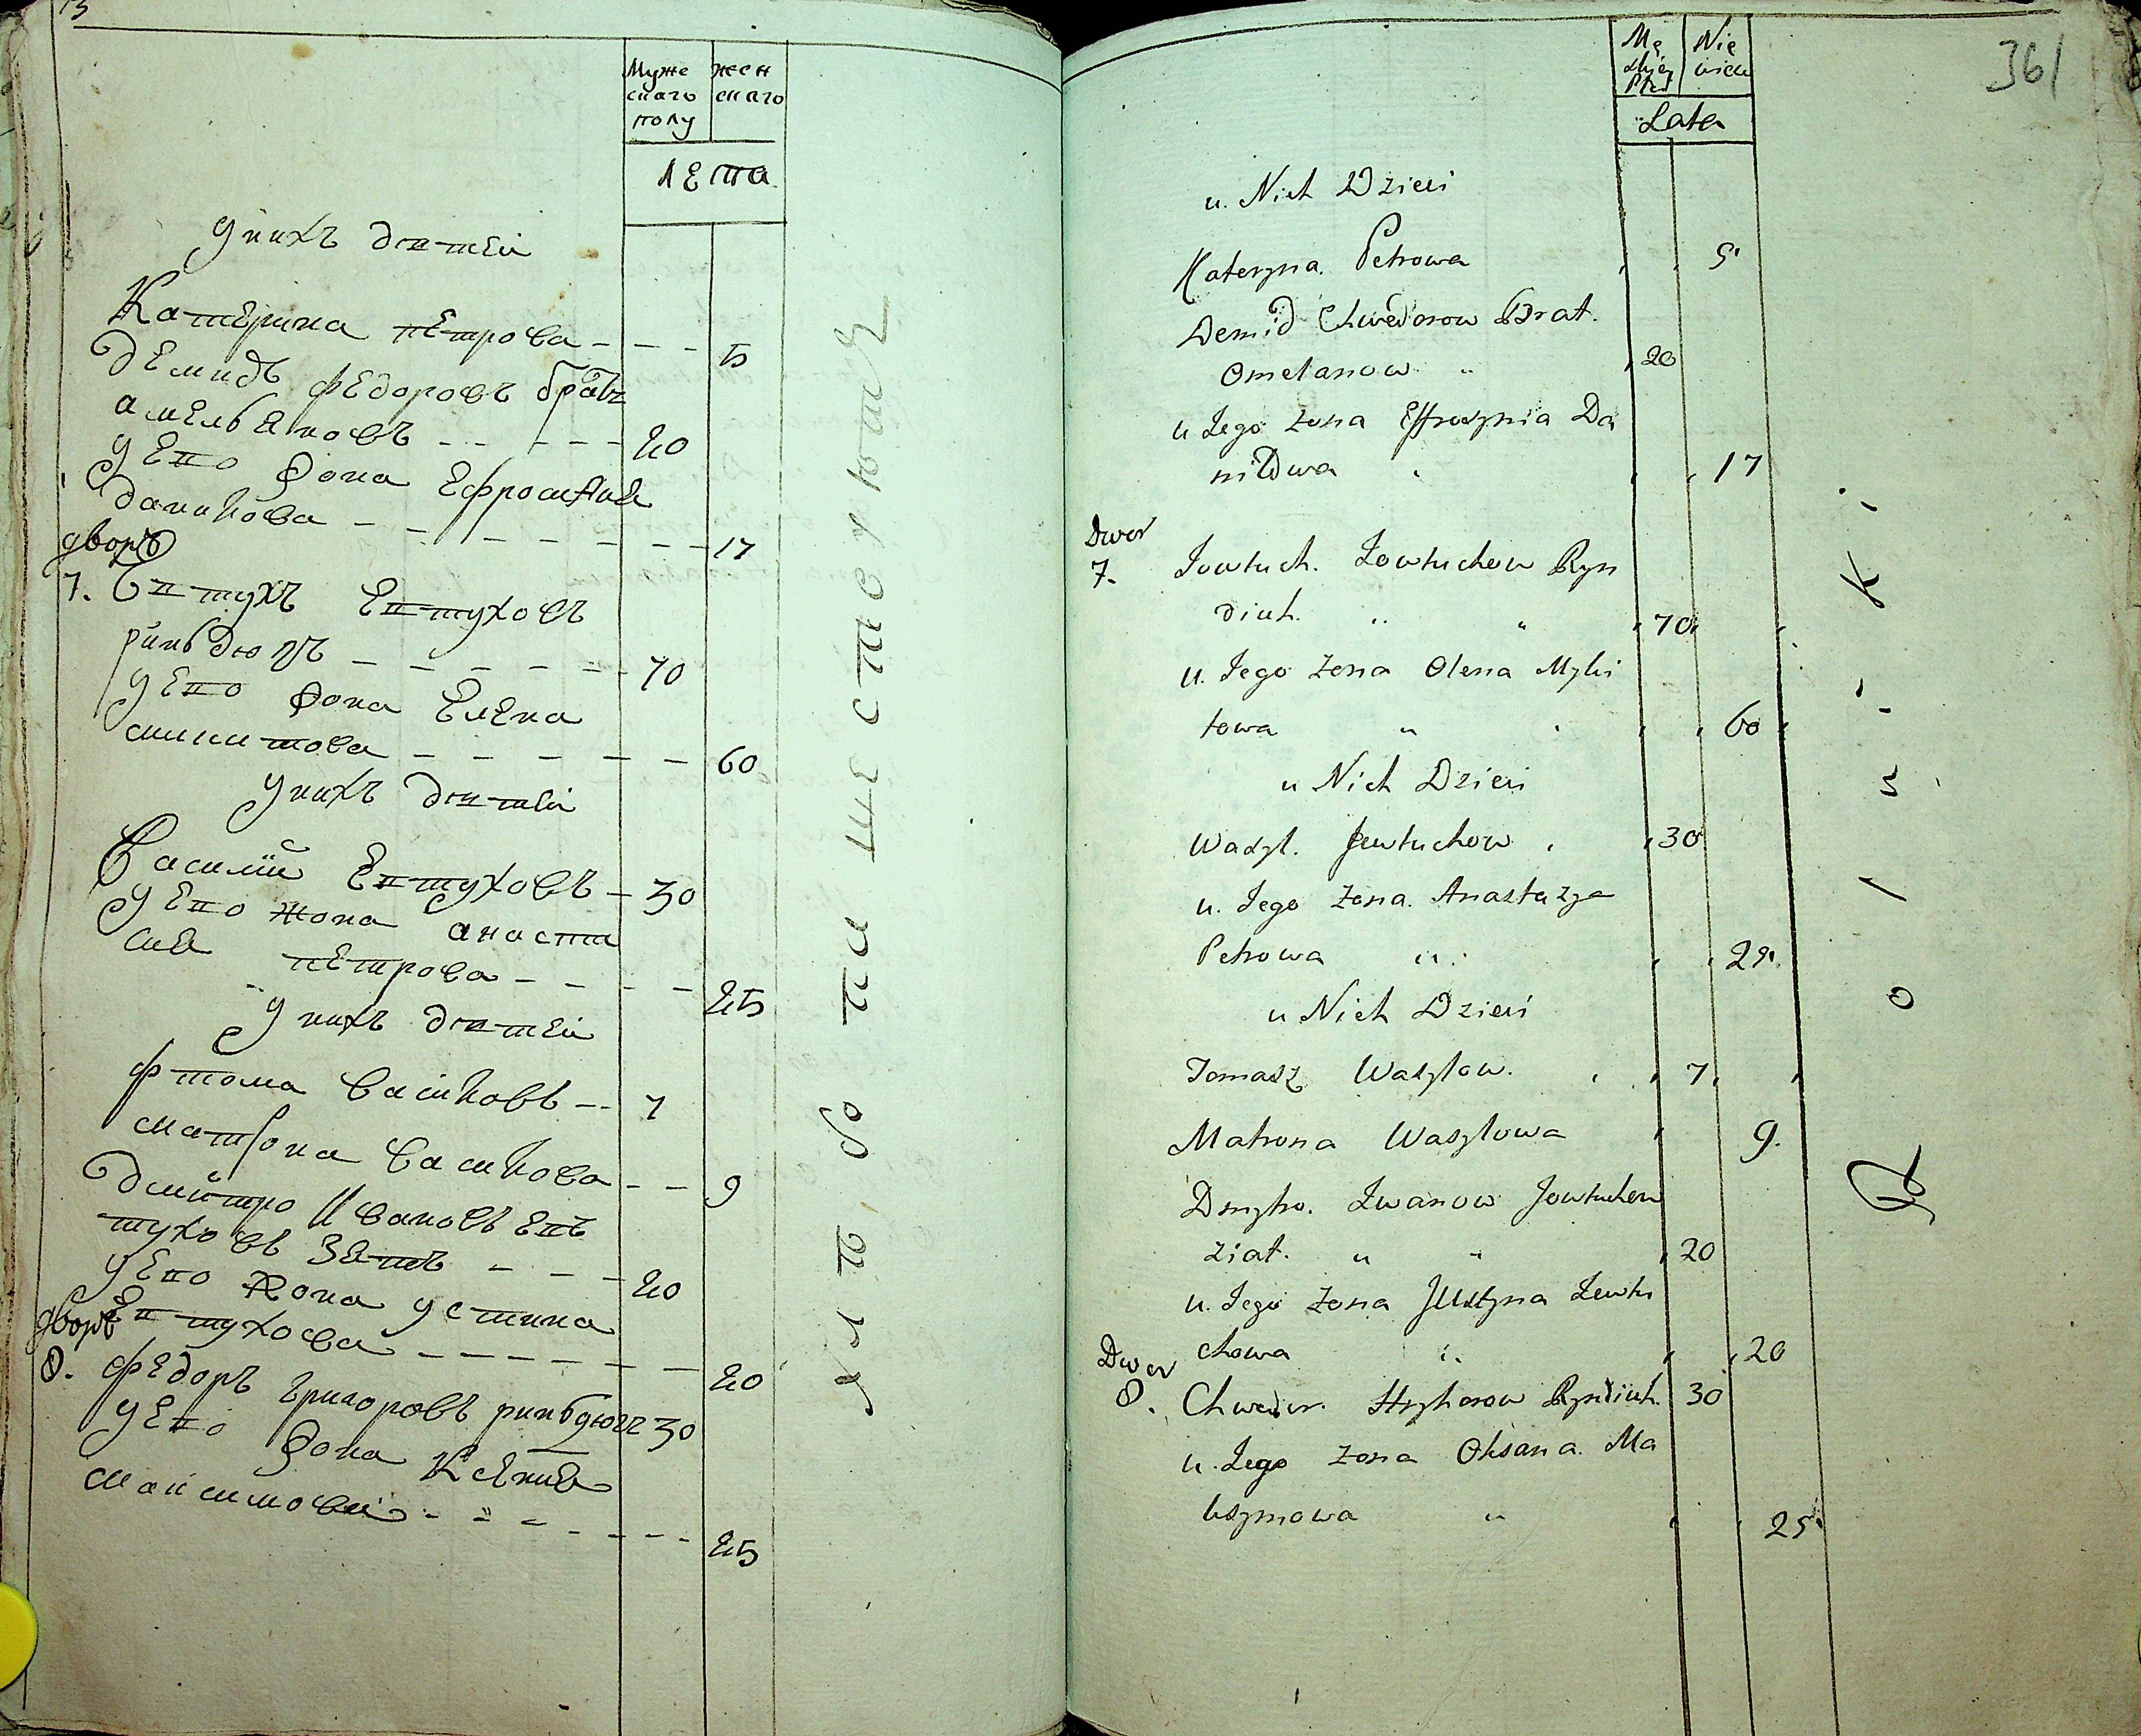 Муже
скаго
полу
жен
скаго
лета
у нихъ дѣтей
Катерина петрова - - - 5
демидъ федоровъ братъ
амельяновъ - - - - - 20
у ево жона ефросиния
данилова - - - - - - - 17
дворъ
7. Евтухъ Евтуховъ
риндюкъ - - - - - - 70
у ево жона Елена
микитова - - - - - - 60
у нихъ дѣтей
Василий Евтуховъ - 30
у ево жона анаста
сия петрова - - - - 25
у нихъ дѣтей
фтома Василовъ - - 7
матрона Василова - - 9
дмитро Ивановъ Евъ
туховъ зять - - - 20
у ево жона устина
Евтухова - - - - - - 20
дворъ
8. федоръ григоровъ риньдюкъ 30
у ево жона Ксения
максимова - - - - - - - 25
361
Mę
skiey
Płci
Nie
wiew
Lata
u. Nich Dzieci
Kateryna. Petrowa 5
Demid Chwedorow Brat.
Omelanow 20
u Jego zona Effrozynia Da
niłowa 17
Dwor
7. Jowtuch. Jowtuchow Ryn
diuk. 70
u. Jego zona Olena Myki
towa 60
u Nich Dzieci
Wasyl. Jewtuchow 30
u. Jego zona. Anastazya
Petrowa 25
u Nich Dzieci
Tomasz Wasylow. 7
Matrona Wasylowa 9.
Dmytro. Iwanow Jowtuchow
ziat. 20
u. Jego zona Justyna Jewtu
chowa 20
Dwor
8. Chwedor. Hryhorow Ryndiuk. 30
u. Jego zona Oksana. Ma
ksymowa 25